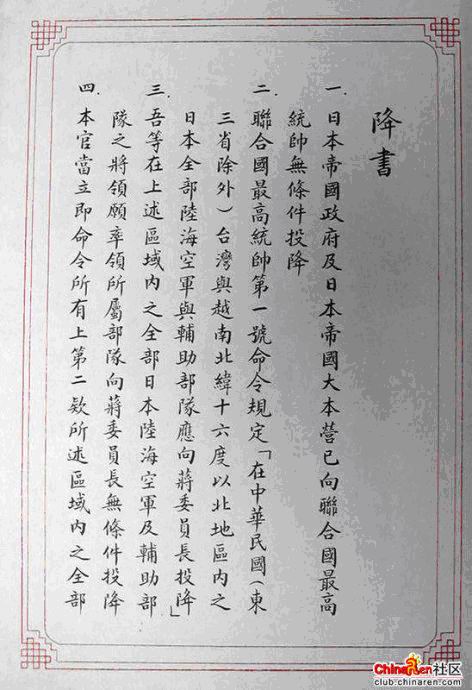 降書
一.日本帝國政府及日本帝國大本營已向聯合國最高
統帥無條件投降
二.聯合國最高統帥第一號命令規定「在中華民國(東
三省除外)台灣與越南北緯十六度以北地區內之
日本全部陸海空軍與輔助部隊應向蔣委員長投降」
三.吾等在上述區域內之全部日本陸海空軍及輔助部
隊之將領願率領所屬部隊向蔣委員長無條件投降
四.本官當立即命令所有上第二欵所述區域內之全部
ChinaRen社区
club.chinaren.com